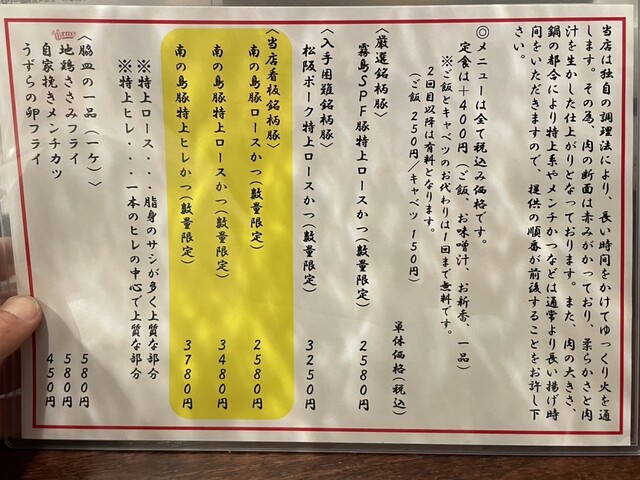 当店は独自の調理法により、長い時間をかけてゆっくり火を通
します。その為、肉の断面は赤みがかっており、柔らかさと肉
汁を生かした仕上がりとなっております。また、肉の大きさ、
鍋の都合により特上系やメンチかつなどは通常より長い揚げ時
間をいただきますので、提供の順番が前後することをお許し下
さい。
◎メニューは全て税込み価格です。
定食は＋400円（ご飯、お味噌汁、お新香、一品）
※ご飯とキャベツのお代わりは1回まで無料です。
2回目以降は有料となります。
（ご飯 250円／キャベツ 150円）
単体価格（税込）
〈厳選銘柄豚〉
霧島SPF豚特上ロースかつ（数量限定） 2580円
〈入手困難銘柄豚〉
松阪ポーク特上ロースかつ（数量限定） 3250円
〈当店看板銘柄豚〉
南の島豚ロースかつ（数量限定） 2580円
南の島豚特上ロースかつ（数量限定） 3480円
南の島豚特上ヒレかつ（数量限定） 3780円
※特上ロース・・・脂身のサシが多く上質な部分
※特上ヒレ・・・・一本のヒレの中心で上質な部分
〈脇皿の一品（一ケ）〉
地鶏ささみフライ 580円
自家挽きメンチカツ 580円
うずらの卵フライ 450円